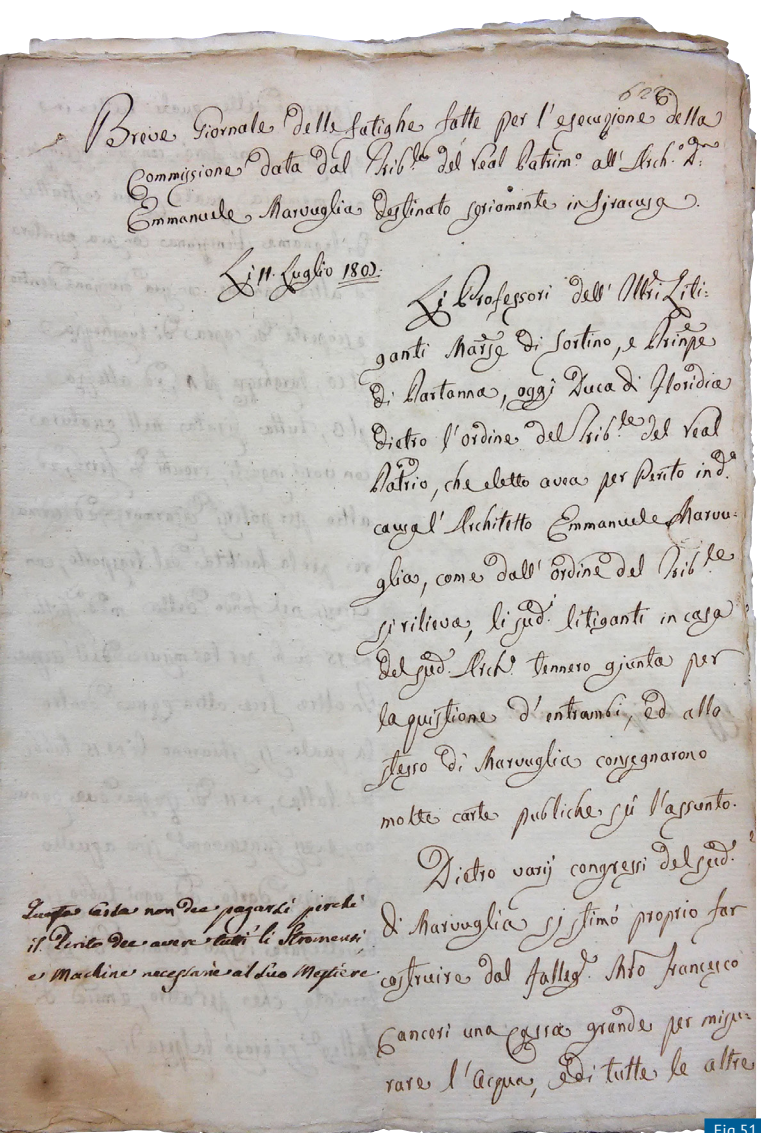 626
Breve Giornale delle fatighe fatte per l'esecuzione della
Commissione data dal Trib.le del Real Patrim.o all' Arch.o D.n
Emmanuele Marvuglia destinato in Siracusa.
Li 11. Luglio
Li Professori dell' Liti-
ganti Marse di Sortino, e Prinpe
di Partanna, oggi Duca di Floridia
dietro l'ordine del Trib.le del Real
Patrio, che eletto avea per Perito in d.a
causa l'Architetto Emmanuele Marvu-
glia, come dall'ordine del Trib.le
si rilieva, li sud.i litiganti in casa
del sud.o Arch.o tennero giunta per
la quistione d'entrambi, ed allo
stesso di Marvuglia consegnarono
molte carte publiche sù l'assunto.
Dietro varij congressi del sud.o
di Marvuglia si stimò proprio far
costruire dal falleg.e Mro Francesco
Canceri una Cassa grande per misu-
rare l'acqua, e di tutte le altre
Questa Cassa non dee pagarsi perchè
il Perito dee avere tutti li Stromenti
e Machine necessarie al suo Mestiere
Fig 51